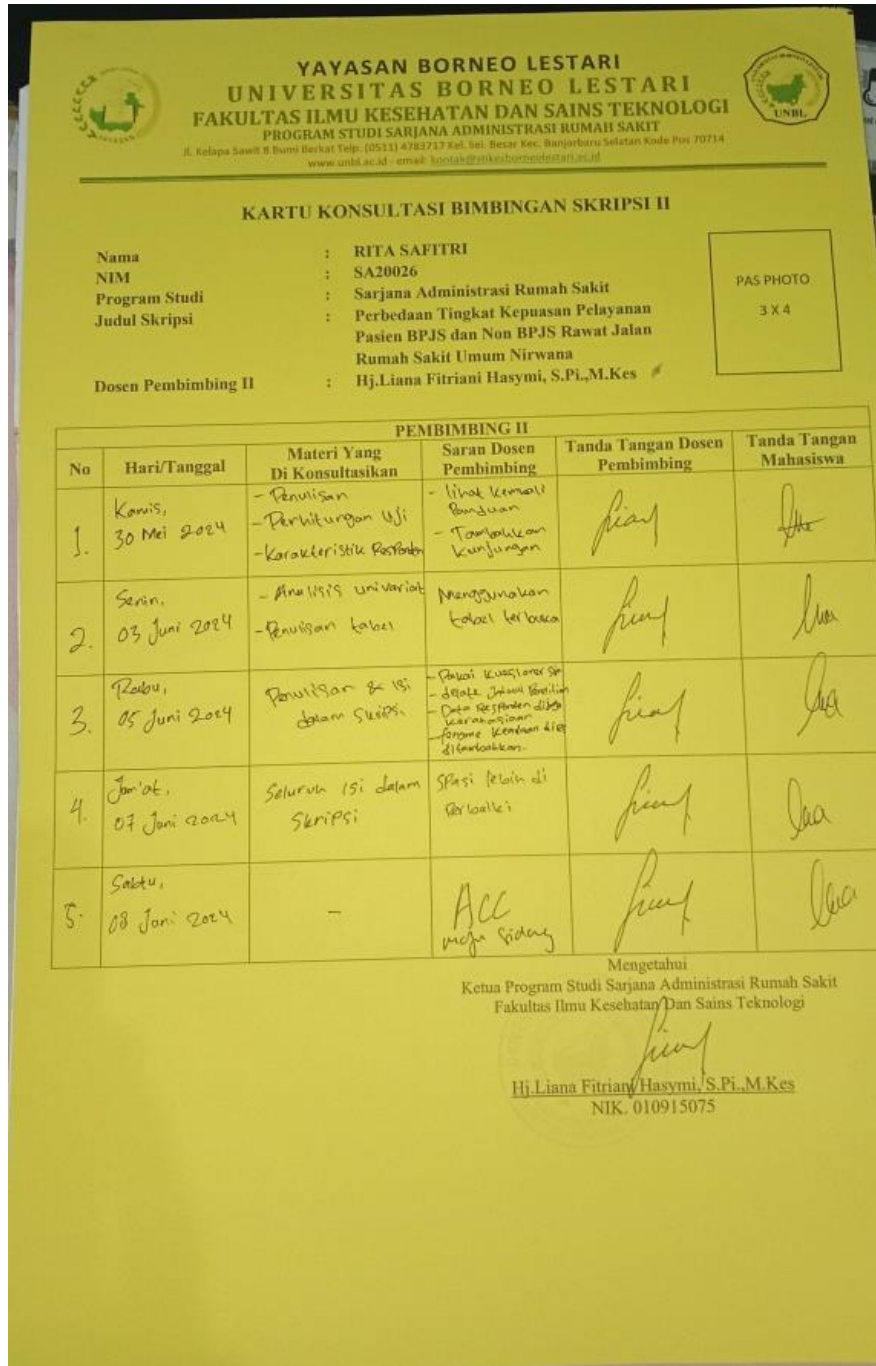 YAYASAN BORNEO LESTARI
UNIVERSITAS BORNEO LESTARI
FAKULTAS ILMU KESEHATAN DAN SAINS TEKNOLOGI
PROGRAM STUDI SARJANA ADMINISTRASI RUMAH SAKIT
Jl. Kelapa Sawit 8 Bumi Berkat Telp. (0511) 4783717 Kel. Sei. Besar Kec. Banjarbaru Selatan Kode Pos 70714
www.unbl.ac.id - email: kontak@stikesborneolestari.ac.id
UNBL
KARTU KONSULTASI BIMBINGAN SKRIPSI II
Nama : RITA SAFITRI
NIM : SA20026
Program Studi : Sarjana Administrasi Rumah Sakit
Judul Skripsi : Perbedaan Tingkat Kepuasan Pelayanan
Pasien BPJS dan Non BPJS Rawat Jalan
Rumah Sakit Umum Nirwana
Dosen Pembimbing II : Hj.Liana Fitriani Hasymi, S.Pi.,M.Kes
PAS PHOTO
3 X 4
PEMBIMBING II
No Hari/Tanggal Materi Yang Di Konsultasikan Saran Dosen Pembimbing Tanda Tangan Dosen Pembimbing Tanda Tangan Mahasiswa
1. Kamis,
30 Mei 2024
- Penulisan
- Perhitungan Uji
- Karakteristik Responden
- lihat kembali
Panduan
- Tambahkan
kunjungan
2. Senin,
03 Juni 2024
- Analisis univariat
- Penulisan tabel
Menggunakan
tabel terbuka
3. Rabu,
05 Juni 2024
Penulisan & isi
dalam Skripsi
- Pakai Kuesioner
- Data Responden
kerahasiaan
ditambahkan.
4. Jum'at,
07 Juni 2024
Seluruh isi dalam
Skripsi
Spasi lebih di
Perbaiki
5. Sabtu,
08 Juni 2024
-
ACC
maju Sidang
Mengetahui
Ketua Program Studi Sarjana Administrasi Rumah Sakit
Fakultas Ilmu Kesehatan Dan Sains Teknologi
Hj.Liana Fitriani Hasymi, S.Pi.,M.Kes
NIK. 010915075